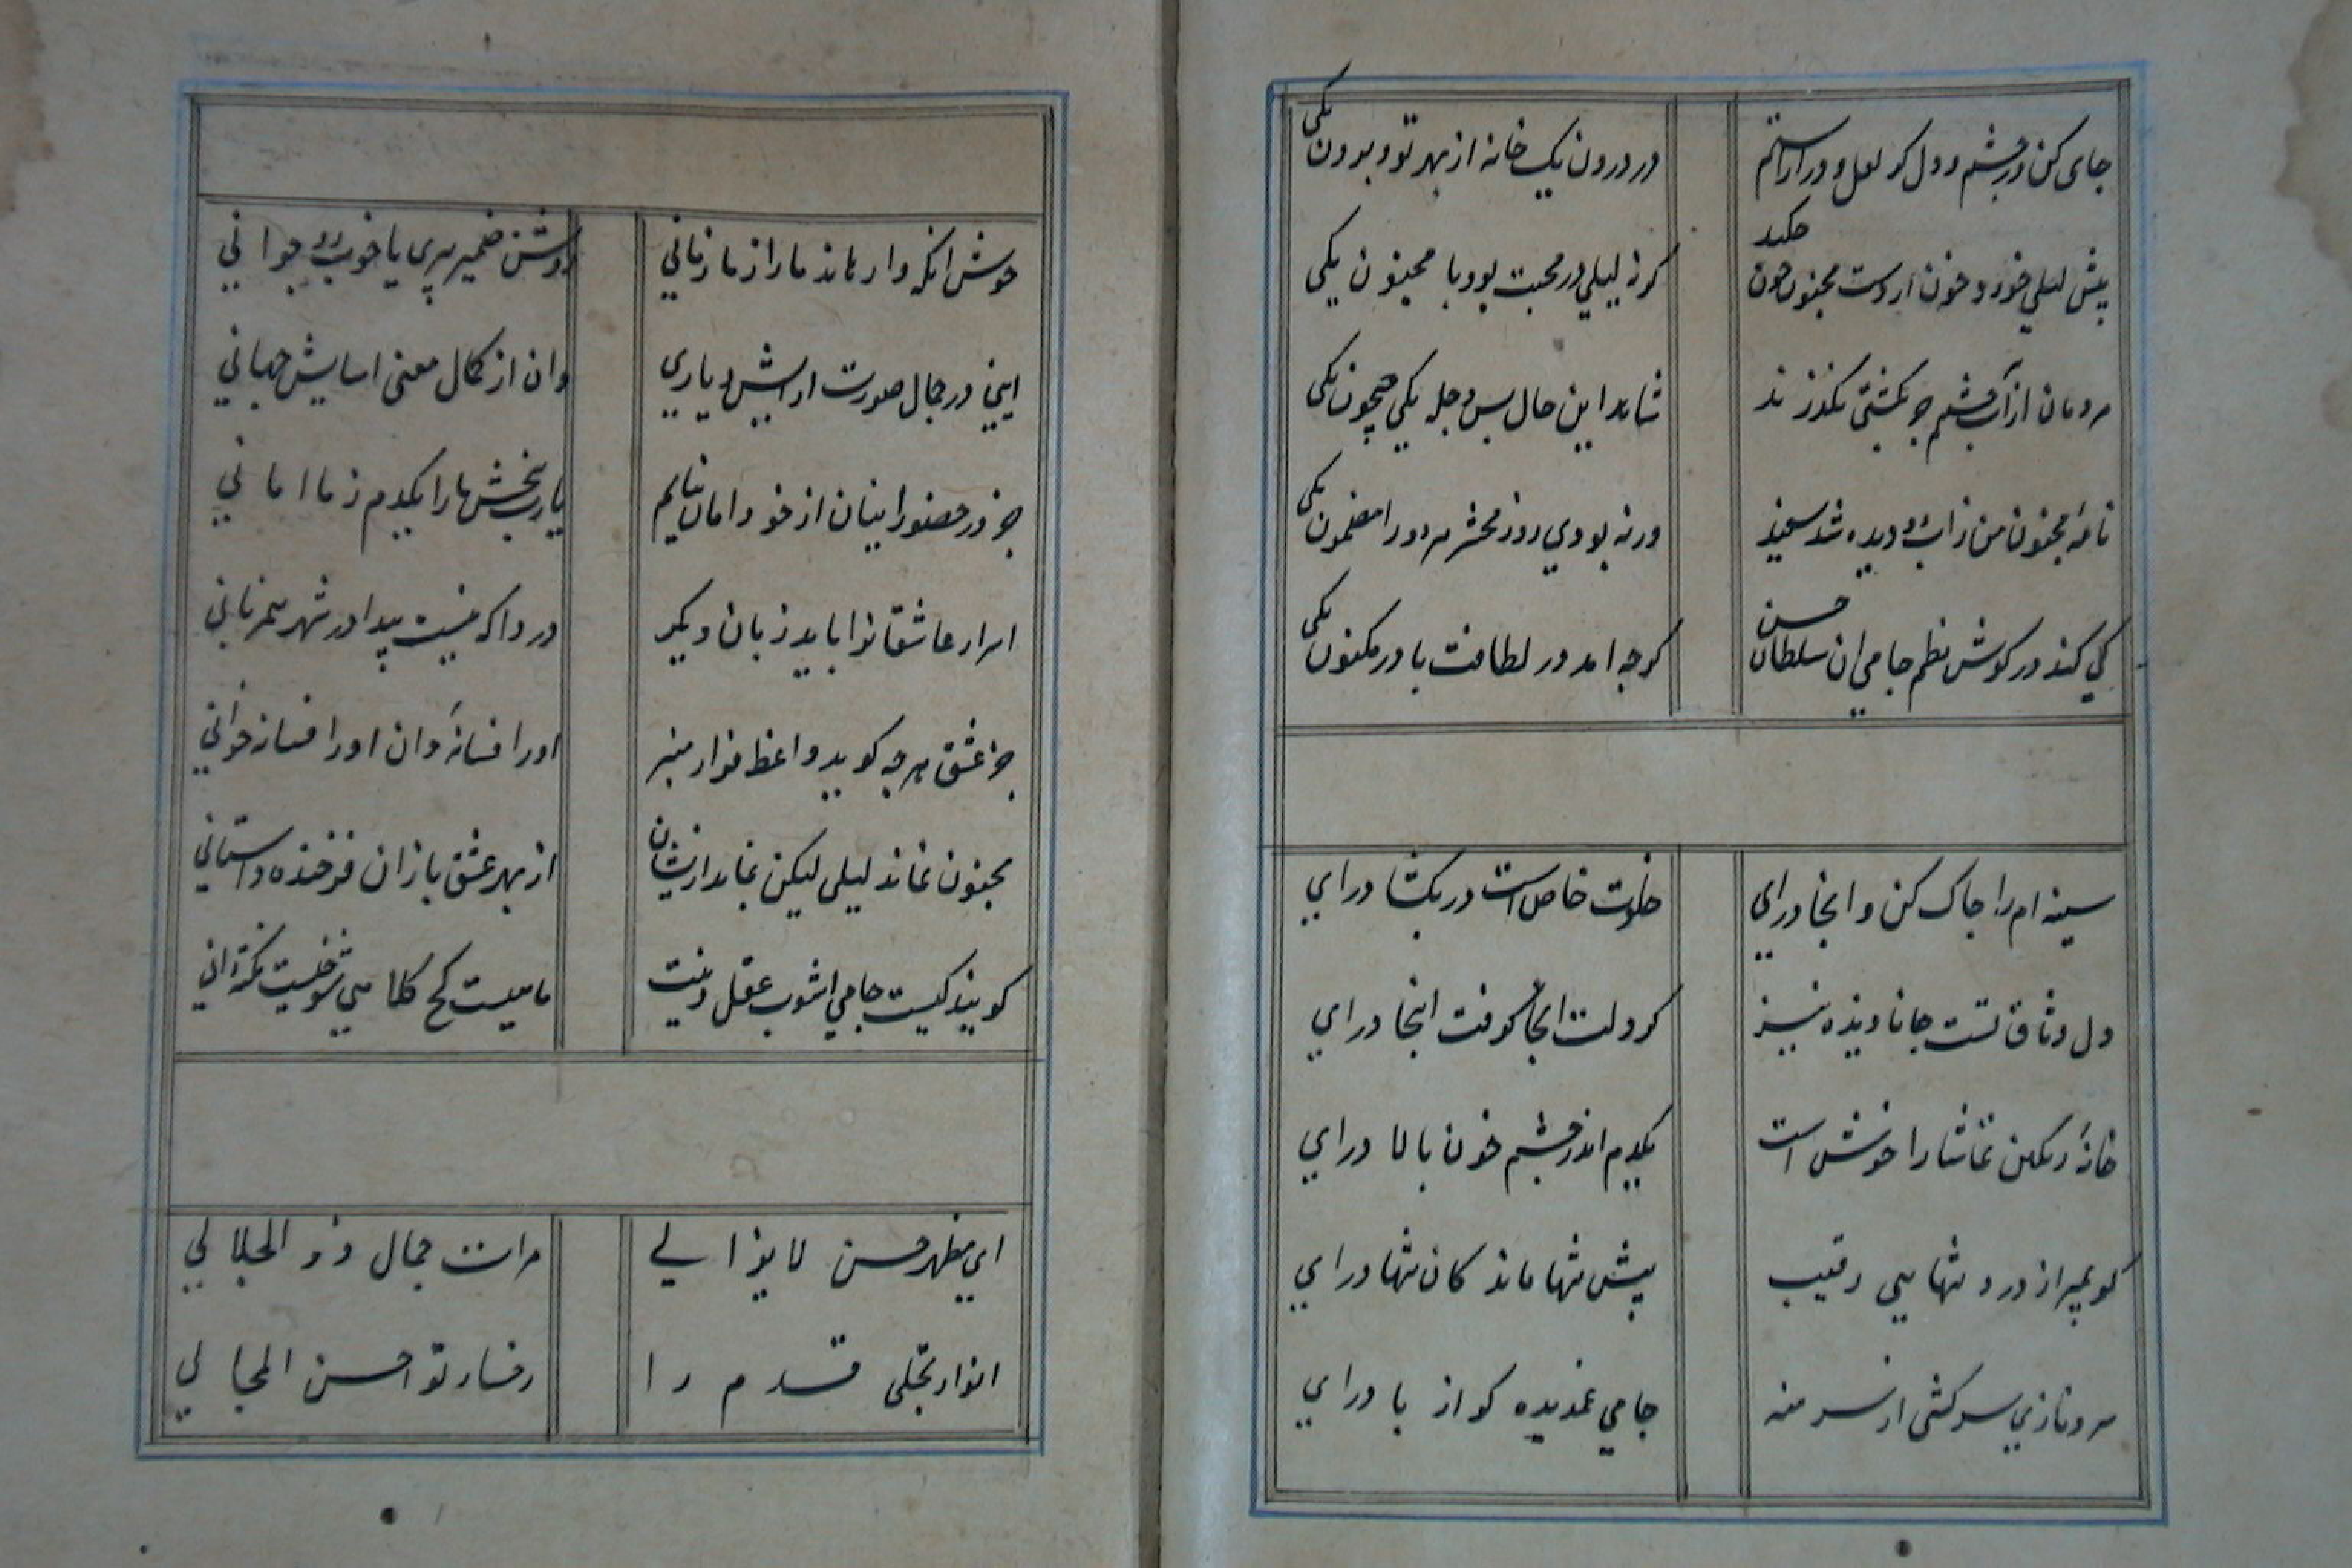 جای کن در چشم و دل کز لعل و در اراستم در درون یک خانه از بهر تو و بیرون یکی
پیش لیلی خورد خون از دست مجنون چون چکید کز لیلی در محبت بود با مجنون یکی
مردمان از آب چشمم جز بکشتی نکذرند شاهد این حال بس دجله یکی جیحون یکی
نامهٔ مجنون من زاب دو دیده شد سفید ورنه بودی روز محشر هر دو را مضمون یکی
کی کند در کوش نظم جامی ان سلطان حسن کرچه امد در لطافت با در مکنون یکی
سینه ام را چاک کن و انجا درای خلوت خاص است در بکشا درای
دل وثاق تست جانا دیده نیز کر دلت انجا کرفت اینجا درای
خانهٔ رنکین تماشا را خوش است یکدم اندر چشم خون پالا درای
کو بمیر از درد تنهایی رقیب پیش تنها ماند کان تنها درای
سرو نازی سرکشی از سر منه جامی غمدیده کو از پا درای
خوش انکه وارهاند ما را ز ما زمانی روشن ضمیر پیری یا خوب رو جوانی
اینی در جمال صورت ارایش دیاری وان از کمال معنی اسایش جهانی
جز در حضور اینان از خود امان نیابم یارب ببخش ما را یکدم ز ما امانی
اسرار عاشقانرا باید زبان دیکر دردا که نیست پیدا در شهر همزبانی
جز عشق هرچه کوید واعظ فراز منبر اورا فسانه دان اورا فسانه خوانی
مجنون نماند لیلی لیکن نماند ازیشان از بهر عشقبازان فرخنده داستانی
کویند کیست جامی اشوب عقل و دینت ماهیست کج کلاهی شوخیست نکته دانی
ای مظهر حسن لایزالی مرات جمال ذو الجلالی
انوار تجلی قدم را رخسار تو احسن المجالی